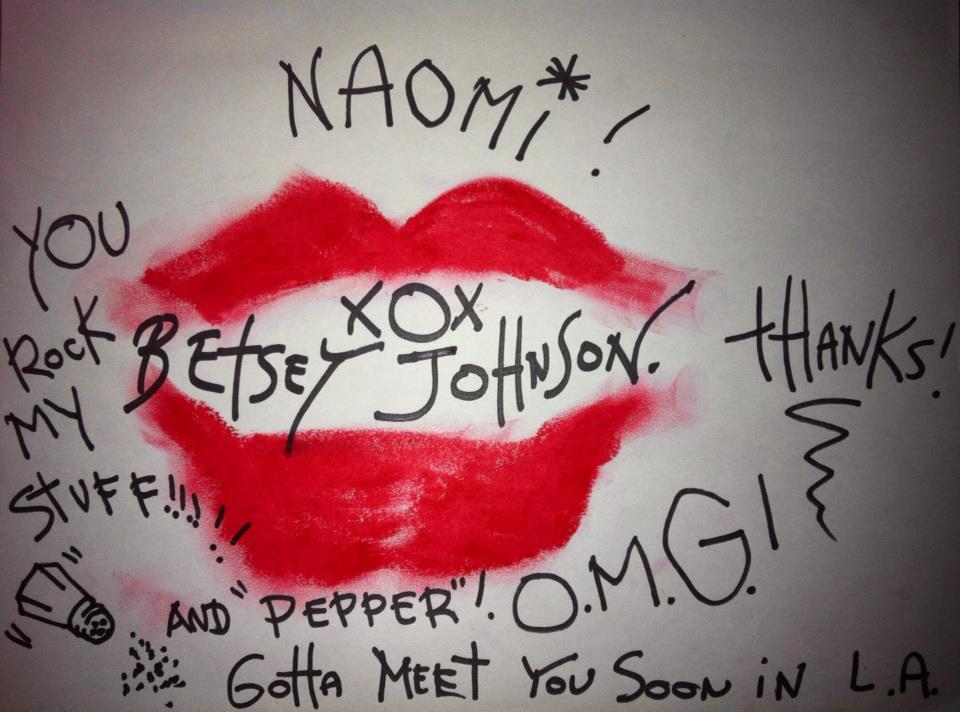 NAOMi*!
YOU
ROCK
MY
STUFF!!!!!
AND "PEPPER"!
XOX
BETSEY JOHNSON.
THANKS!
O.M.G.!
GOTTA MEET YOU SOON iN L.A.